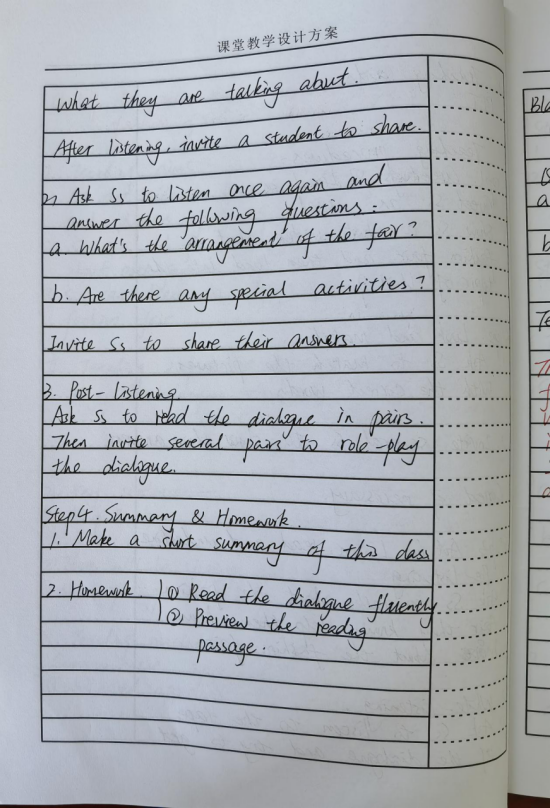 课堂教学设计方案
What they are talking about.
After listening, invite a student to share.
2, Ask Ss to listen once again and
answer the following questions:
a. What's the arrangement of the fair?
b. Are there any special activities?
Invite Ss to share their answers.
3. Post-listening.
Ask Ss to read the dialogue in pairs.
Then invite several pairs to role-play
the dialogue.
Step 4. Summary & Homework.
1. Make a short summary of this class
2. Homework. ① Read the dialogue fluently
② Preview the reading
passage.